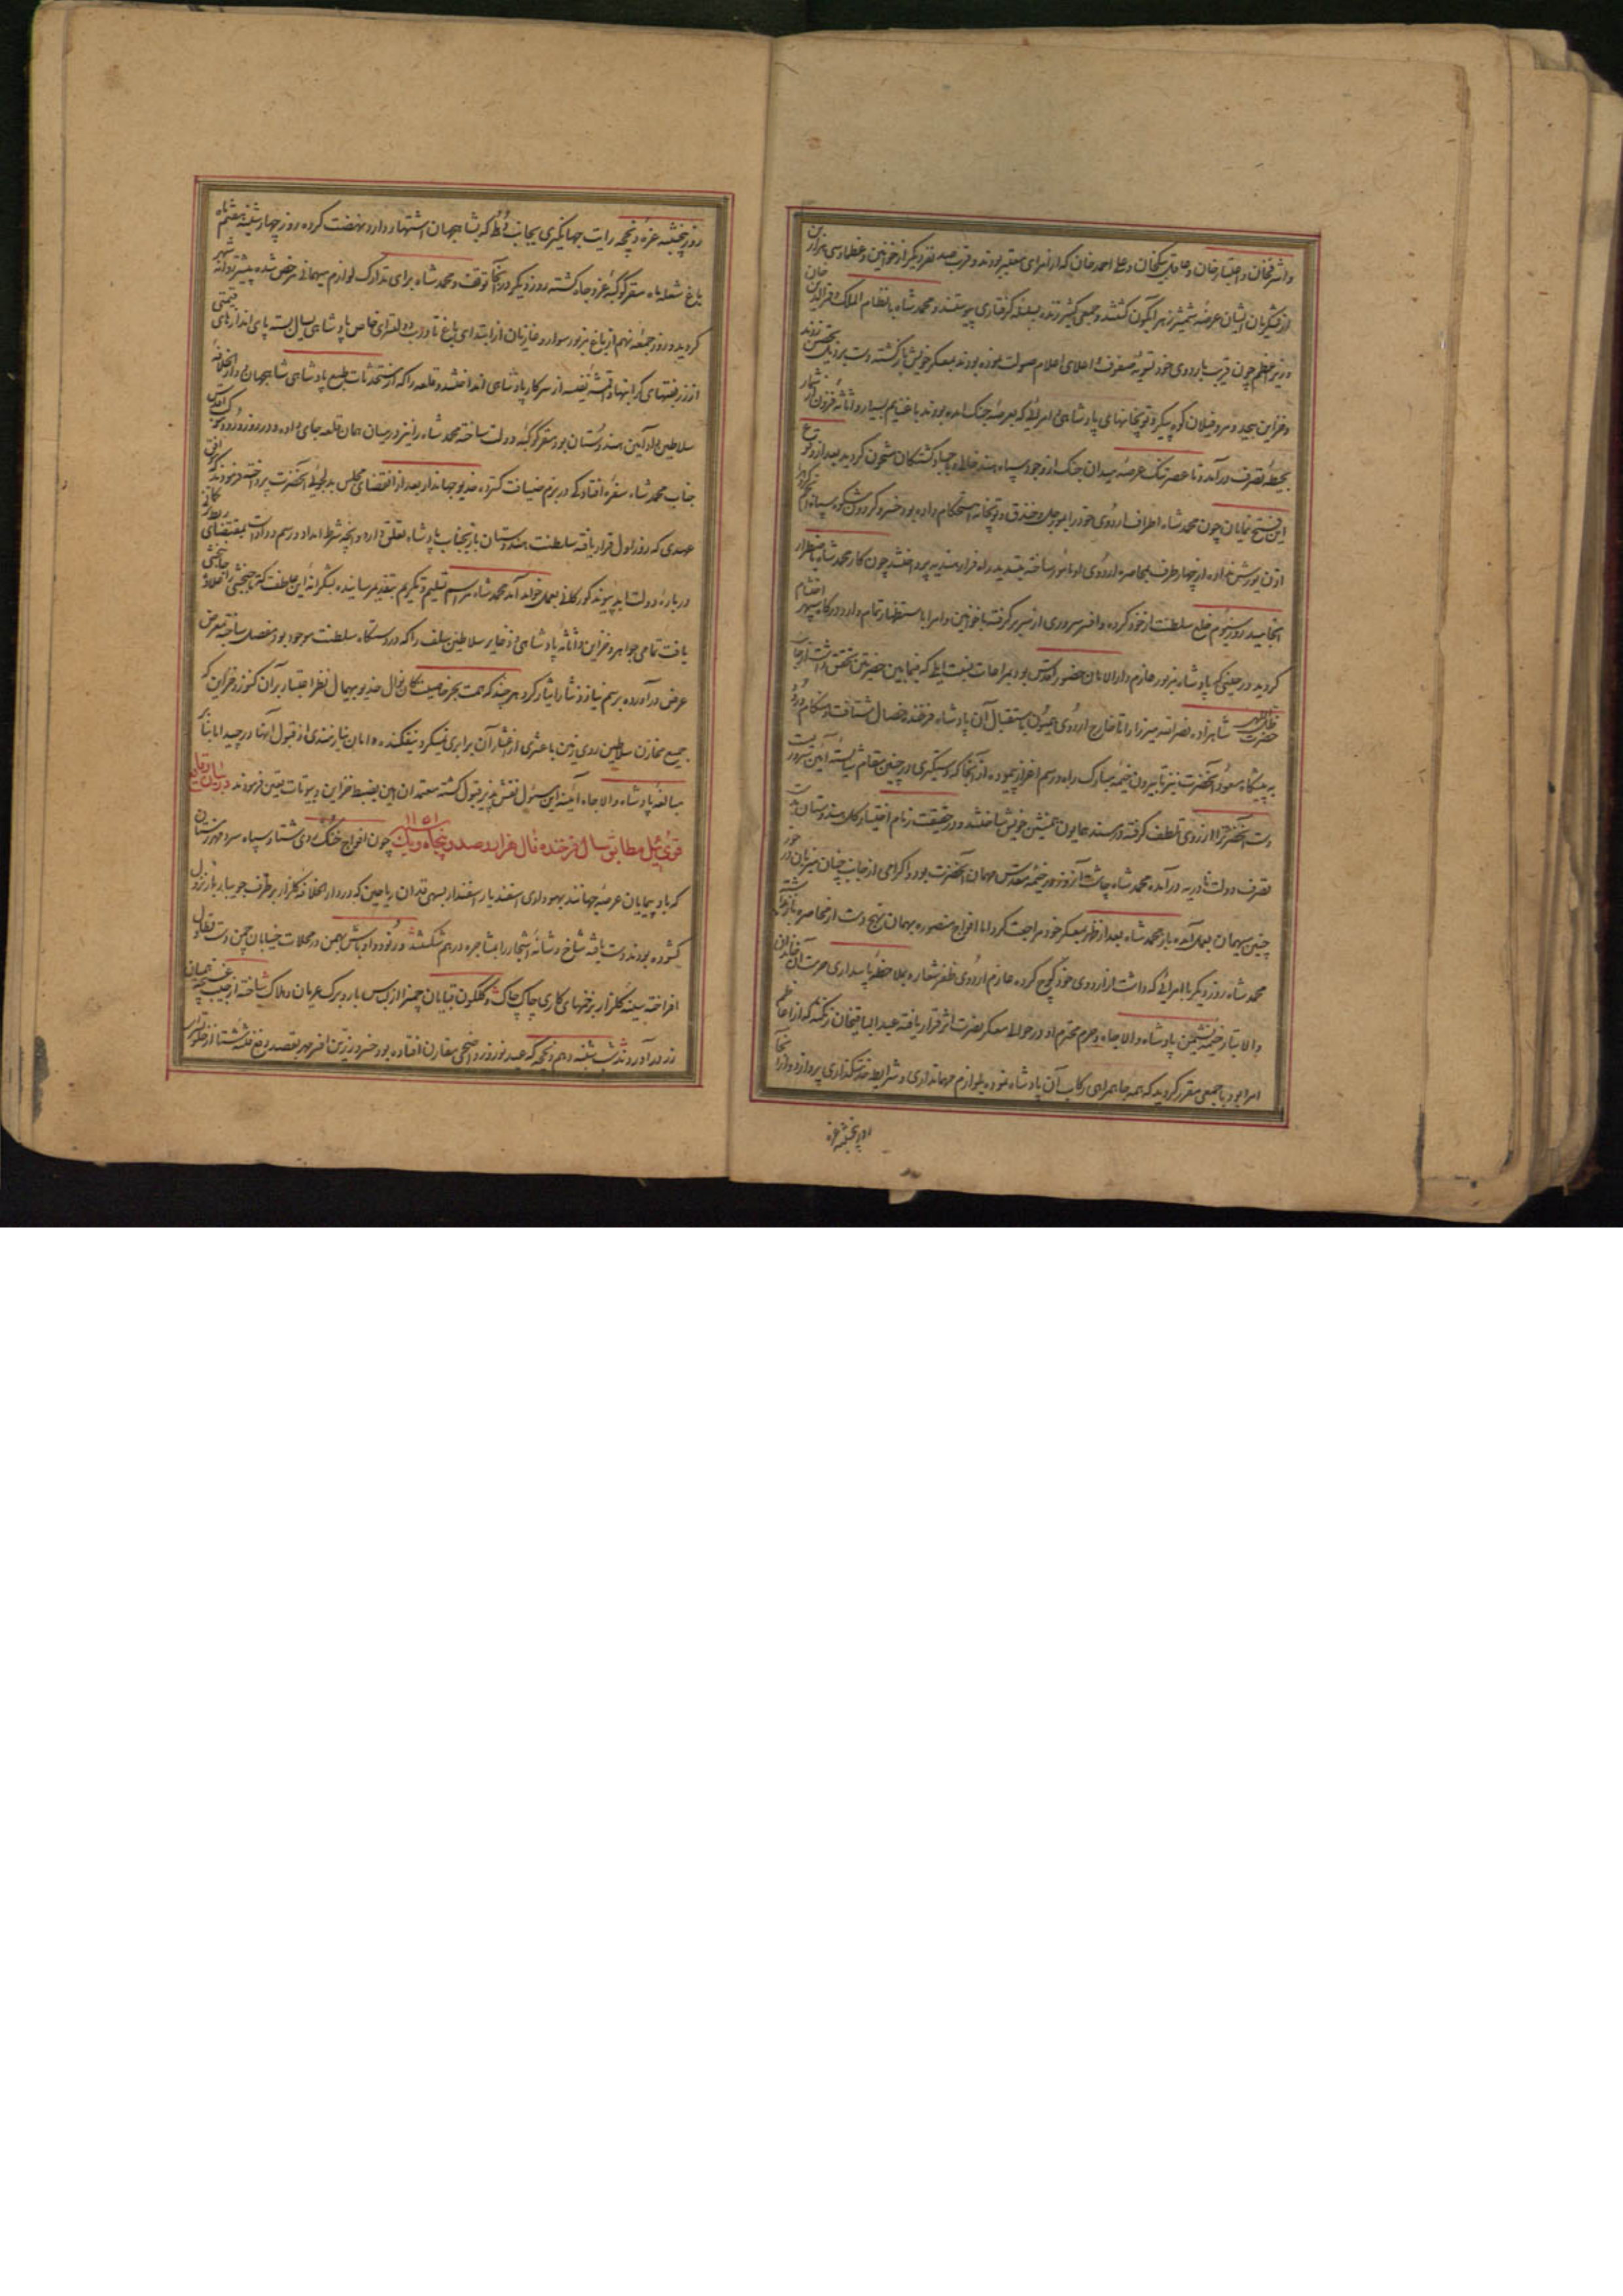 واشرفخان و اعتبارخان و عاقل بیکخان و علی احمد خان که از امرای معتبر بودند و قریب صد نفر دیگر از خوانین و عظما و سی هزار تن
از لشکریان ایشان عرضهٔ شمشیر زهرآبگون گشتند و جمعی کثیر زنده بسلسله گرفتاری پیوستند و محمد شاه با نظام الملک و قمرالدین خان
وزیر اعظم چون قریب باردوی خود تسویهٔ صفوف و اعلای اعلام صولت نموده بودند بمعسکر خویش بازگشته دست بر دیل تحصن زدند
و خزاین بیحد و مر و فیلان کوه پیکر و توپخانهای پادشاهی و امرائی که بعرصهٔ جنک آمده بودند با غنایم بسیار و اثاثه فزون از شمار
بحیطهٔ تصرف درآمد و تا عصر تنک عرصهٔ میدان جنک از وجود سپاه هند خالی و باجساد کشتکان مشحون کردید بعد از وقوع
این فتح نمایان چون محمد شاه اطراف اردوی خود را بمورجل و خندق و توپخانه استحکام داده بود خسرو کردون شکوه سپاه انجم گروه را
اذن یورش نداده از چهار طرف بمحاصره اردوی او مامور ساخته بتسدید راه فرار هندیه پرداختند چون کار محمد شاه باضطرار
انجامید روز سیوم خلع سلطنت از خود کرده و افسر سروری از سر برگرفته با خوانین و امرا با استظهار تمام وارد درکاه سپهر احتشام
کردید در حینی که پادشاه مزبور عازم دارالامان حضور اقدس بود بمراعات نسبت ایلی که فیمابین حضرتین تحقق داشت از جانب
حضرت ظل اللهی شاهزاده نصرالله میرزا را تا خارج اردوی همیون باستقبال آن پادشاه فرخنده خصال شتافت و هنکام ورود
به پیشکاه سعود آنحضرت نیز تا بیرون خیمه مبارک راه و رسم اعزاز پیموده از آنجا که دستکیری در چنین مقام شایسته آئین سروریست
دست آنحضرت را از روی تلطف کرفته در مسند همایون همنشین خویش ساختند و در حقیقت زمام اختیار کل هندوستان بدست
تصرف دولت نادریه درآمده محمد شاه چاشت آنروز در خیمهٔ مقدس مهمان آنحضرت بود و اکرامی از جانب چنان میزبان در خور
چنین میهمان بعمل آمده باز محمد شاه بعد از ظهر بمعسکر خود مراجعت کرد اما افواج منصوره بهمان نهج دست از محاصره باز نداشته
محمد شاه روز دیکر با امرائی که داشت از اردوی خود کوچ کرده عازم اردوی ظفر شعار و بملاحظهٔ پاسداری حرمت آن خاندان
والا تبار خیمه نشیمن پادشاه والا جاه و حرم محترم او در حوالی معسکر نصرت اثر قرار یافته عبدالباقیخان زنکنه که از اعاظم
امرا بود با جمعی مقرر کردید که همه جا همراهی رکاب آن پادشاه نموده بلوازم مهمانداری و شرایط خدمتکذاری پردازد و از آنجا
روز پنجشنبه غره
روز پنجشنبه غرهٔ ذیحجه رایت جهانکیری بجانب دهلی که بشاهجهان آباد اشتهار دارد نهضت کرده روز چهارشنبه هفتم ماه
باغ شعله ماه مقر کوکبهٔ عز و جاه کشته روز دیکر در آنجا توقف و محمد شاه برای تدارک لوازم میهمانی مرخص شده پیشتر روانه شهر
کردید و روز جمعه نهم از باغ مزبور سوار و غازیان از ابتدای باغ تا درب دولتسرای خاص پادشاهی یسال بسته پای اندازهای قیمتی
از زربفتهای کرانبها و اقمشه نفیسه از سرکار پادشاهی انداختند و قلعه را که از مستحدثات طبع پادشاهی شاهجهان و دارالخلافه
سلاطین والا آئین هندوستان بود مقر کوکبهٔ دولت ساخته محمد شاه را نیز در میان همان قلعه جای داده و در روز ورود موکب اقدس
جناب محمد شاه سفرهٔ افادگی در بزم ضیافت کسترده خدیو جهاندار بعد از انقضای مجلس بدلجوئی آنحضرت پرداخته فرمودند که موافق
عهدی که روز اول قرار یافته سلطنت هندوستان باز بجناب پادشاه تعلق دارد و آنچه شرط امداد و رسم وداد است بمقتضای ربط ترکمانی
در باره دولت ابد پیوند کورکانی بعمل خواهد آمد محمد شاه مراسم تسلیم و تکریم بتقدیم رسانیده بشکرانهٔ این عاطفت که تاجبخشی را علاوهٔ جانبخشی
یافت تمامی جواهر و خزاین و اثاثهٔ پادشاهی و ذخایر سلاطین سلف را که در دستکاه سلطنت موجود بود مفصل ساخته بمعرض
عرض درآورده برسم نیاز و نثار ایثار کرد هر چند که همت بحر خاصیت کان نوال خدیو بیهمال نظر اعتبار بر آن کنوز و خزاین که
جمیع مخازن سلاطین روی زمین با عشری از اعشار آن برابری نمیکرد نیفکنده دامان نیازمندی از قبول آنها درچید اما بنا بر
مبالغه پادشاه والا جاه آئینه این مسئول نقش پذیر قبول کشته معتمدان امین بضبط خزاین و بیوتات تعین فرمودند در بیان وقایع
قوی ئیل مطابق سال فرخنده فال هزار و صد و پنجاه و یک ۱۱۵۱ چون افواج خنک دی شتا و سپاه سرد مهر زمستان
که باد پیمایان عرصهٔ جهانند بهوا داری اسفندیار اسفندار بسهی قدان ریاحین که در دارالخلافه کلزار بر طرف جویبار بار نزول
کشوده بودند دست یافته شاخ و شانهٔ اشجار را بمشاجره درهم شکستند و رنود و اوباش بهمن در محلات خیابان چمن دست تطاول
افراخته سینهٔ کلزار بزخمهای کاری چاک چاک و کلکون قبایان چمن را از لباس بار و برک عریان و هلاک ساخته از جیب غنچه همیان
زر در آوردند شب شنبه دهم ذیحجه که عید نوروز و اضحی مقارن افتاده بود خسرو زرین افسر مهر بقصد دفع فتنه شتا از خلوتسرای